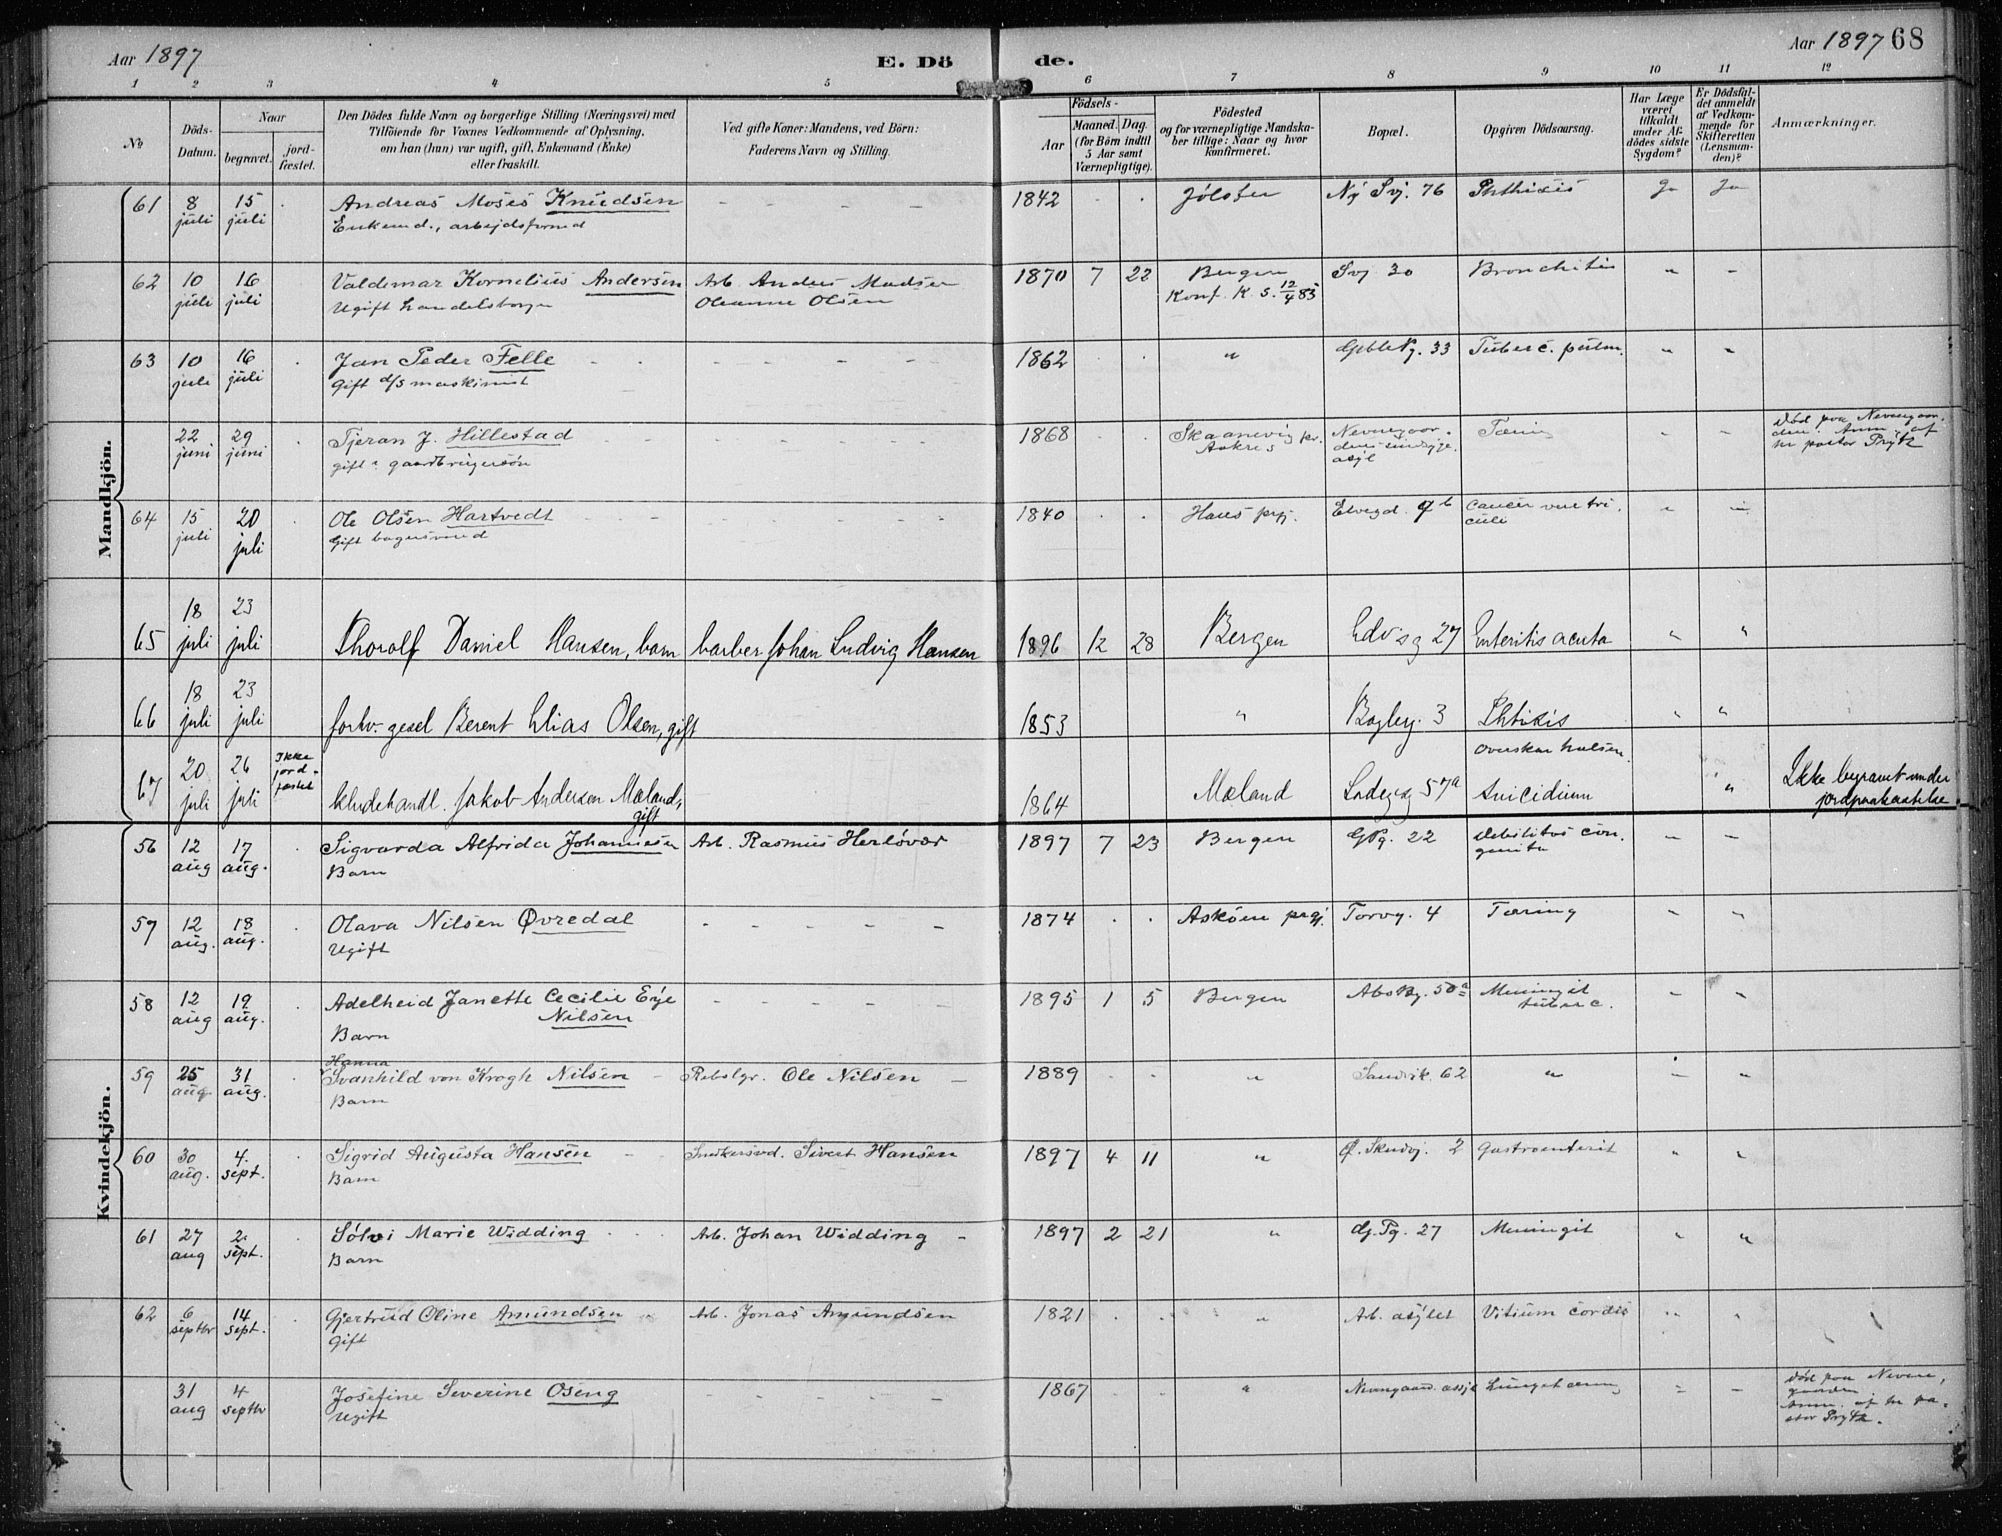 Aar 1897 E. Dö de. Aar 1897 68
1 2 3 4 5 6 7 8 9 10 11 12
No
Döds-Datum.
Naar
begravet.
jord-fæstet.
Den Dödes fulde Navn og borgerlige Stilling (Næringsvei) med
Tilföiende for Voxnes Vedkommende af Oplysning,
om han (hun) var ugift, gift, Enkemand (Enke)
eller fraskilt.
Ved gifte Koner: Mandens, ved Börn:
Faderens Navn og Stilling.
Födsels-
Aar
Maaned. Dag.
(for Börn indtil
5 Aar samt
Værnepligtige).
Födested
og for værnepligtige Mandska-
ber tillige: Naar og hvor
konfirmeret.
Bopæl.
Opgiven Dödsaarsag.
Har Læge
været
tilkaldt
under Af-
dödes sidste
Sygdom?
Er Dödsfal-
det anmeldt
af Vedkom-
mende for
Skifteretten
(Lensman-
den)?
Anmærkninger.
Mandkjön.
61 8 juli 15 juli Andreas Moses Knudsen 1842 Jölster Ny Svj. 76 Phthisis Ja Ja
Enkemd., arbejdsformd
62 10 juli 16 juli Valdemar Kornelius Andersen Arb. Anders Madsen 1870 7 22 Bergen Svj 30 Bronchitis " "
Ugift handelsborger Oleanne Olsen Konf. K. S. 12/4 85
63 10 juli 16 juli Jan Peder Felle 1862 " 33 Tuberc. pulm. " "
Gift d/s maskinist
22 juni 29 juni Tjeran J. Hillestad 1868 Skaanevig pr. Aakres Nevengaardens sindssyge asyl Tæring " " Död paa Nevengaarden. Anm. af hr pastor Prytz
gift gaardbrugersön
64 15 juli 20 juli Ole Olsen Hartvedt 1840 Haus prgj. Elvegd. 9b Cancer ventriculi " "
Gift bogensvend
65 18 juli 23 juli Thoralf Daniel Hansen, barn barber Johan Ludvig Hansen 1896 12 28 Bergen Edvsg 27 Enteritis acuta " "
66 18 juli 23 juli forhv. gesel Berent Elias Olsen, gift 1853 " 3 Phtisis " "
67 20 juli 26 juli Ikke jord-fæstet kludehandl. Jakob Andersen Mæland, gift 1864 Mæland Ladegsg 57a overskar halsen Suicidium " " Ikke begravet under jordpaakastelse
Kvindekjön.
56 12 aug 17 aug. Sigvarda Alfrida Johannesen Arb. Rasmus Herlövær 1897 7 23 Bergen 22 Debilitas congenita " "
Barn
57 12 aug. 18 aug. Olava Nilsen Øvredal 1874 Asköen prgj. Torvg. 4 Tæring " "
Ugift
58 12 aug 19 aug. Adelheid Janette Cecilie Eye Nilsen 1895 1 5 Bergen 50a Meningit tuberc. " "
Barn
59 25 aug 31 aug. Hanna Svanhild von Krogh Nilsen Rebslgr. Ole Nilsen 1889 " Sandvik. 62 " " "
Barn
60 30 aug. 4. sept. Sigrid Augusta Hansen Snedkersvd. Sivert Hansen 1897 4 11 " Ø. Skudvj. 2 Gastroenterit " "
Barn
61 27 aug 2. sept. Sølvi Marie Widding Arb. Johan Widding 1897 2 21 " 27 Meningit " "
Barn
62 6 septbr 14 sept. Gjertrud Oline Amundsen Arb. Jonas Amundsen 1821 " Arb. asylet Vitium cordis " "
gift
31 aug 4 septbr Josefine Severine Oseng 1867 " Nevengaard. asyl Lungetæring " " Död paa Nevengaarden Anm. af hr pastor Prytz.
Ugift